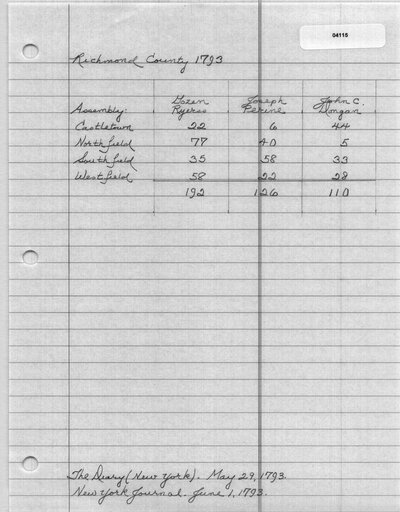 04115
Richmond County 1793
Gozen Joseph John C.
Assembly: Ryerss Perine Dongan
Castletown 22 6 44
Northfield 77 40 5
Southfield 35 58 33
Westfield 58 22 28
192 126 110
The Diary (New York). May 29, 1793.
New York Journal. June 1, 1793.